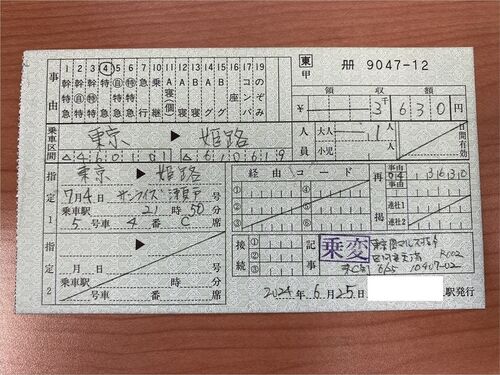 東 甲 冊 9047-12
事由
1 幹特急
2 幹自特急
3 幹特特急
4 特急
5 自特急
6 特特急
7 急行
10 乗継
11 A寝(個)
12 A寝
13 B寝
14 Aグ
15 Bグ
16 座
17 コンパ
19 のぞみ
領収額
¥ 3千630円
人員 大人 1人
小児
日間有効
乗車区間 東京 ▶ 姫路
4601011 610619
指定1 東京 ▶ 姫路
7月4日 サンライズ瀬戸 号
乗車駅 21時50分
5号車 4番 C席
経由コード
① ④
② ⑤
③ ⑥
再掲 事由 04 31630
事由
連社1
連社2
指定2 ▶
月 日 号
乗車駅 時 分
号車 番 席
接続 ① ② ③
記事 乗変
2024年6月25日 駅発行